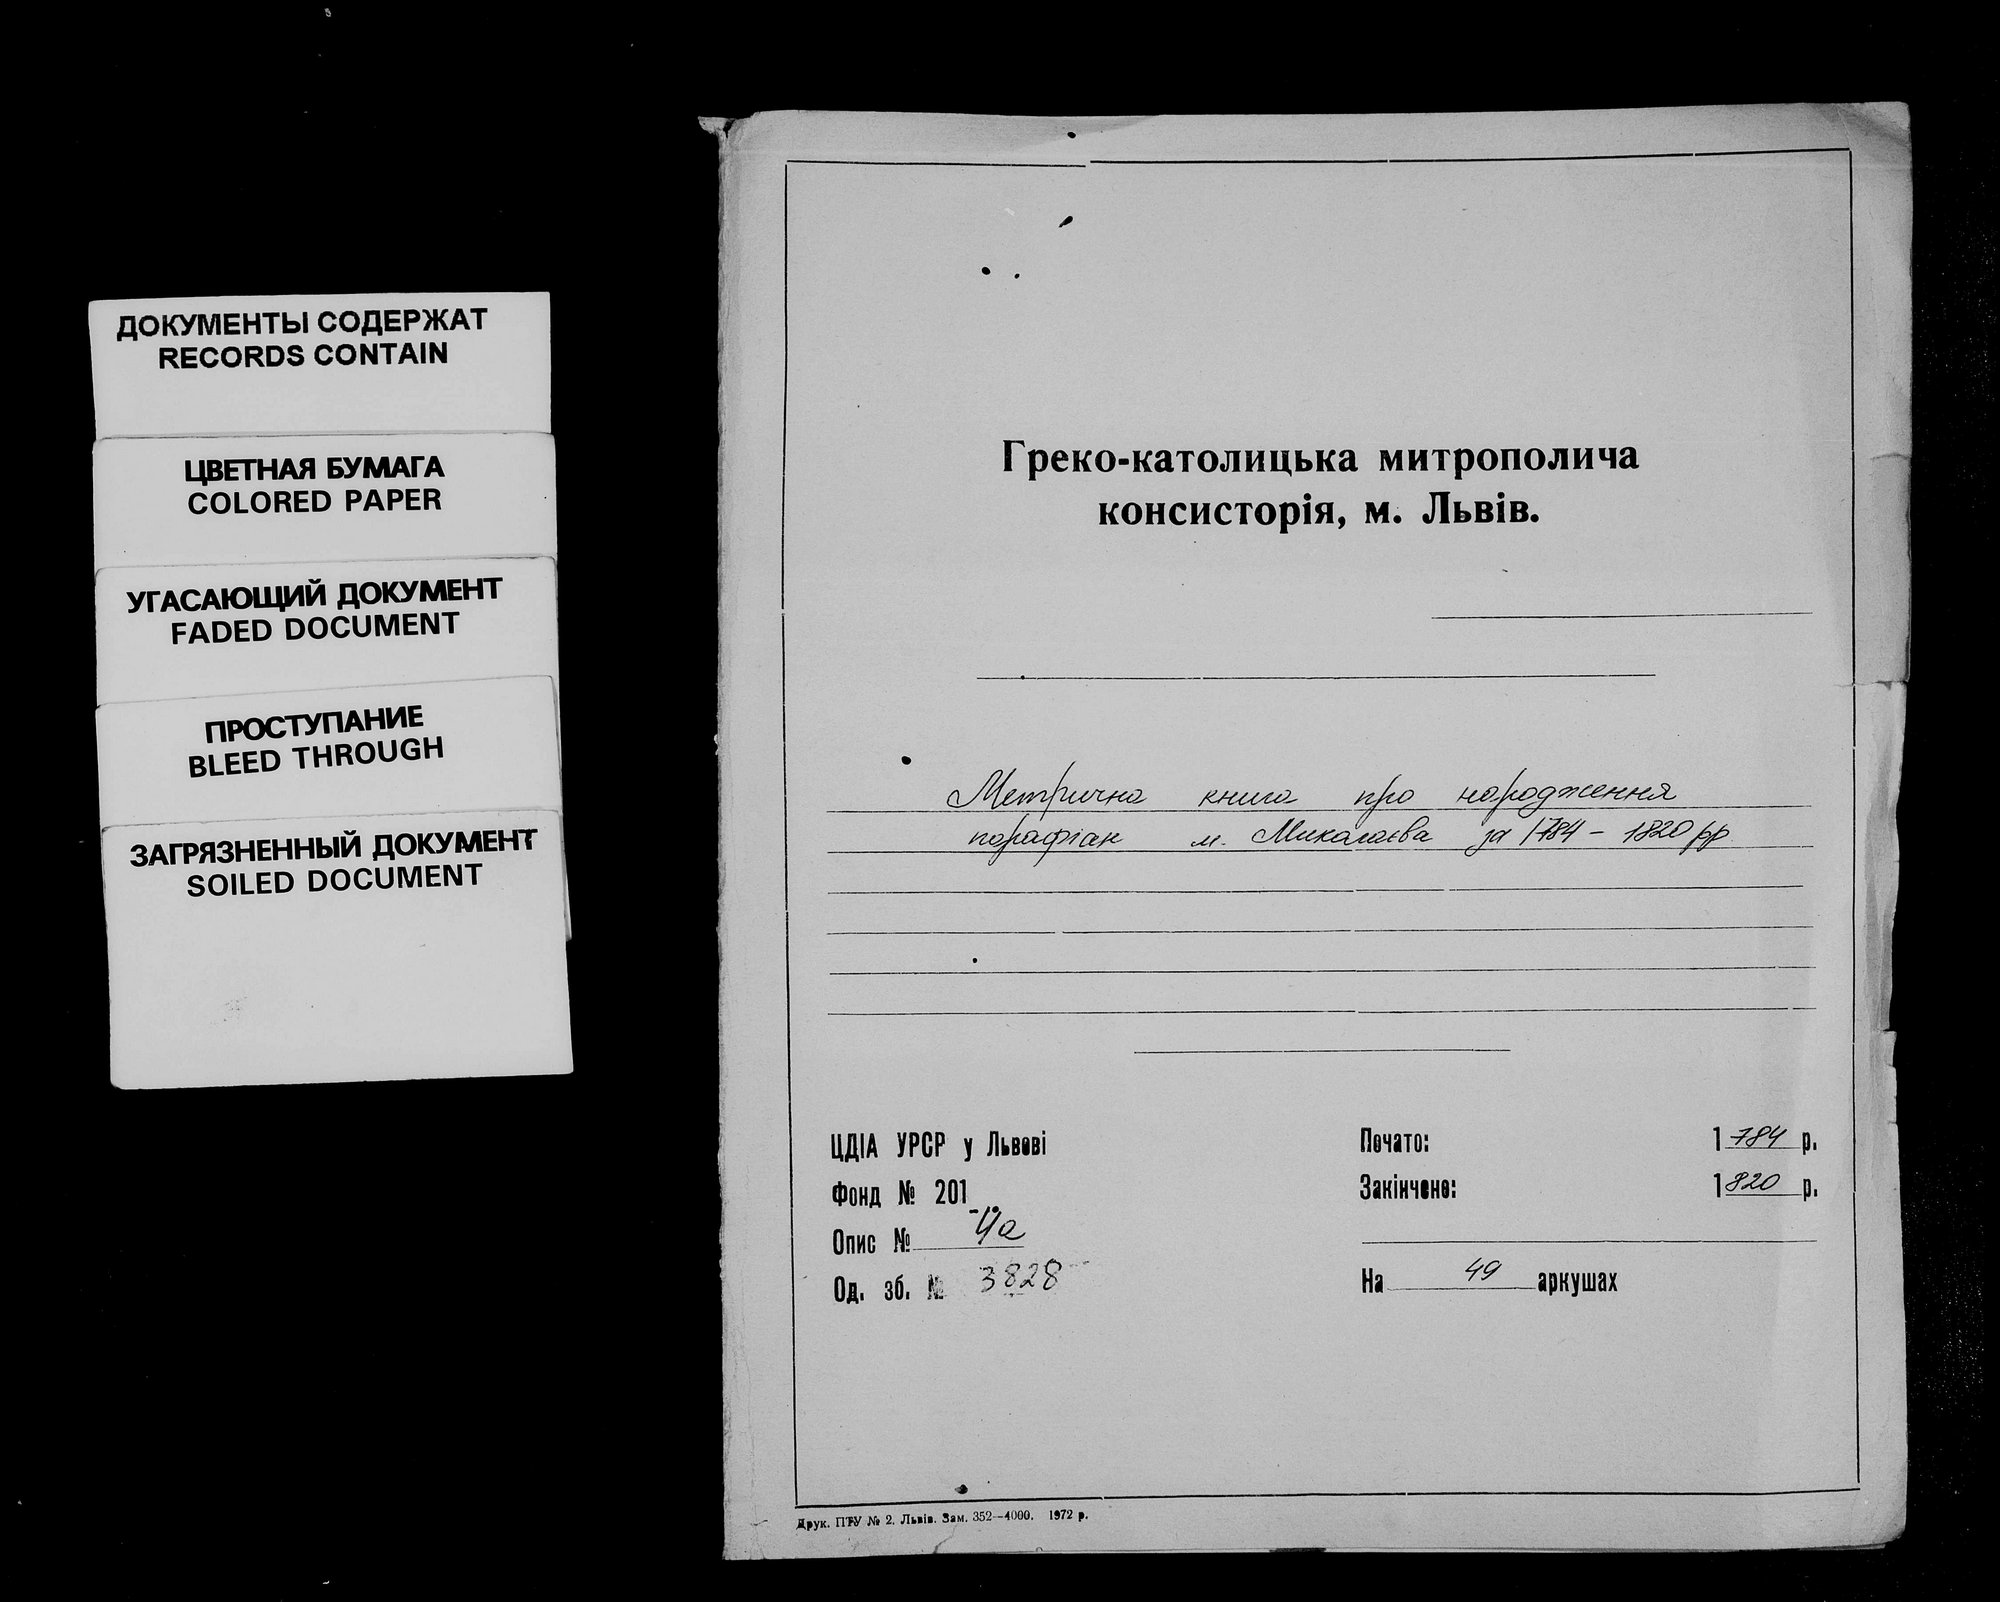 ДОКУМЕНТЫ СОДЕРЖАТ
RECORDS CONTAIN
ЦВЕТНАЯ БУМАГА
COLORED PAPER
УГАСАЮЩИЙ ДОКУМЕНТ
FADED DOCUMENT
ПРОСТУПАНИЕ
BLEED THROUGH
ЗАГРЯЗНЕННЫЙ ДОКУМЕНТ
SOILED DOCUMENT
Греко-католицька митрополича
консисторія, м. Львів.
Метрична книга про народження
парафіан м. Миколаєва за 1784 – 1820 рр
ЦДІА УРСР у Львові
Фонд № 201
Опис № 4а
Од. зб. № 3828
Почато: 1784 р.
Закінчено: 1820 р.
На 49 аркушах
Друк. ПТУ № 2. Львів. Зам. 352—4000. 1972 р.